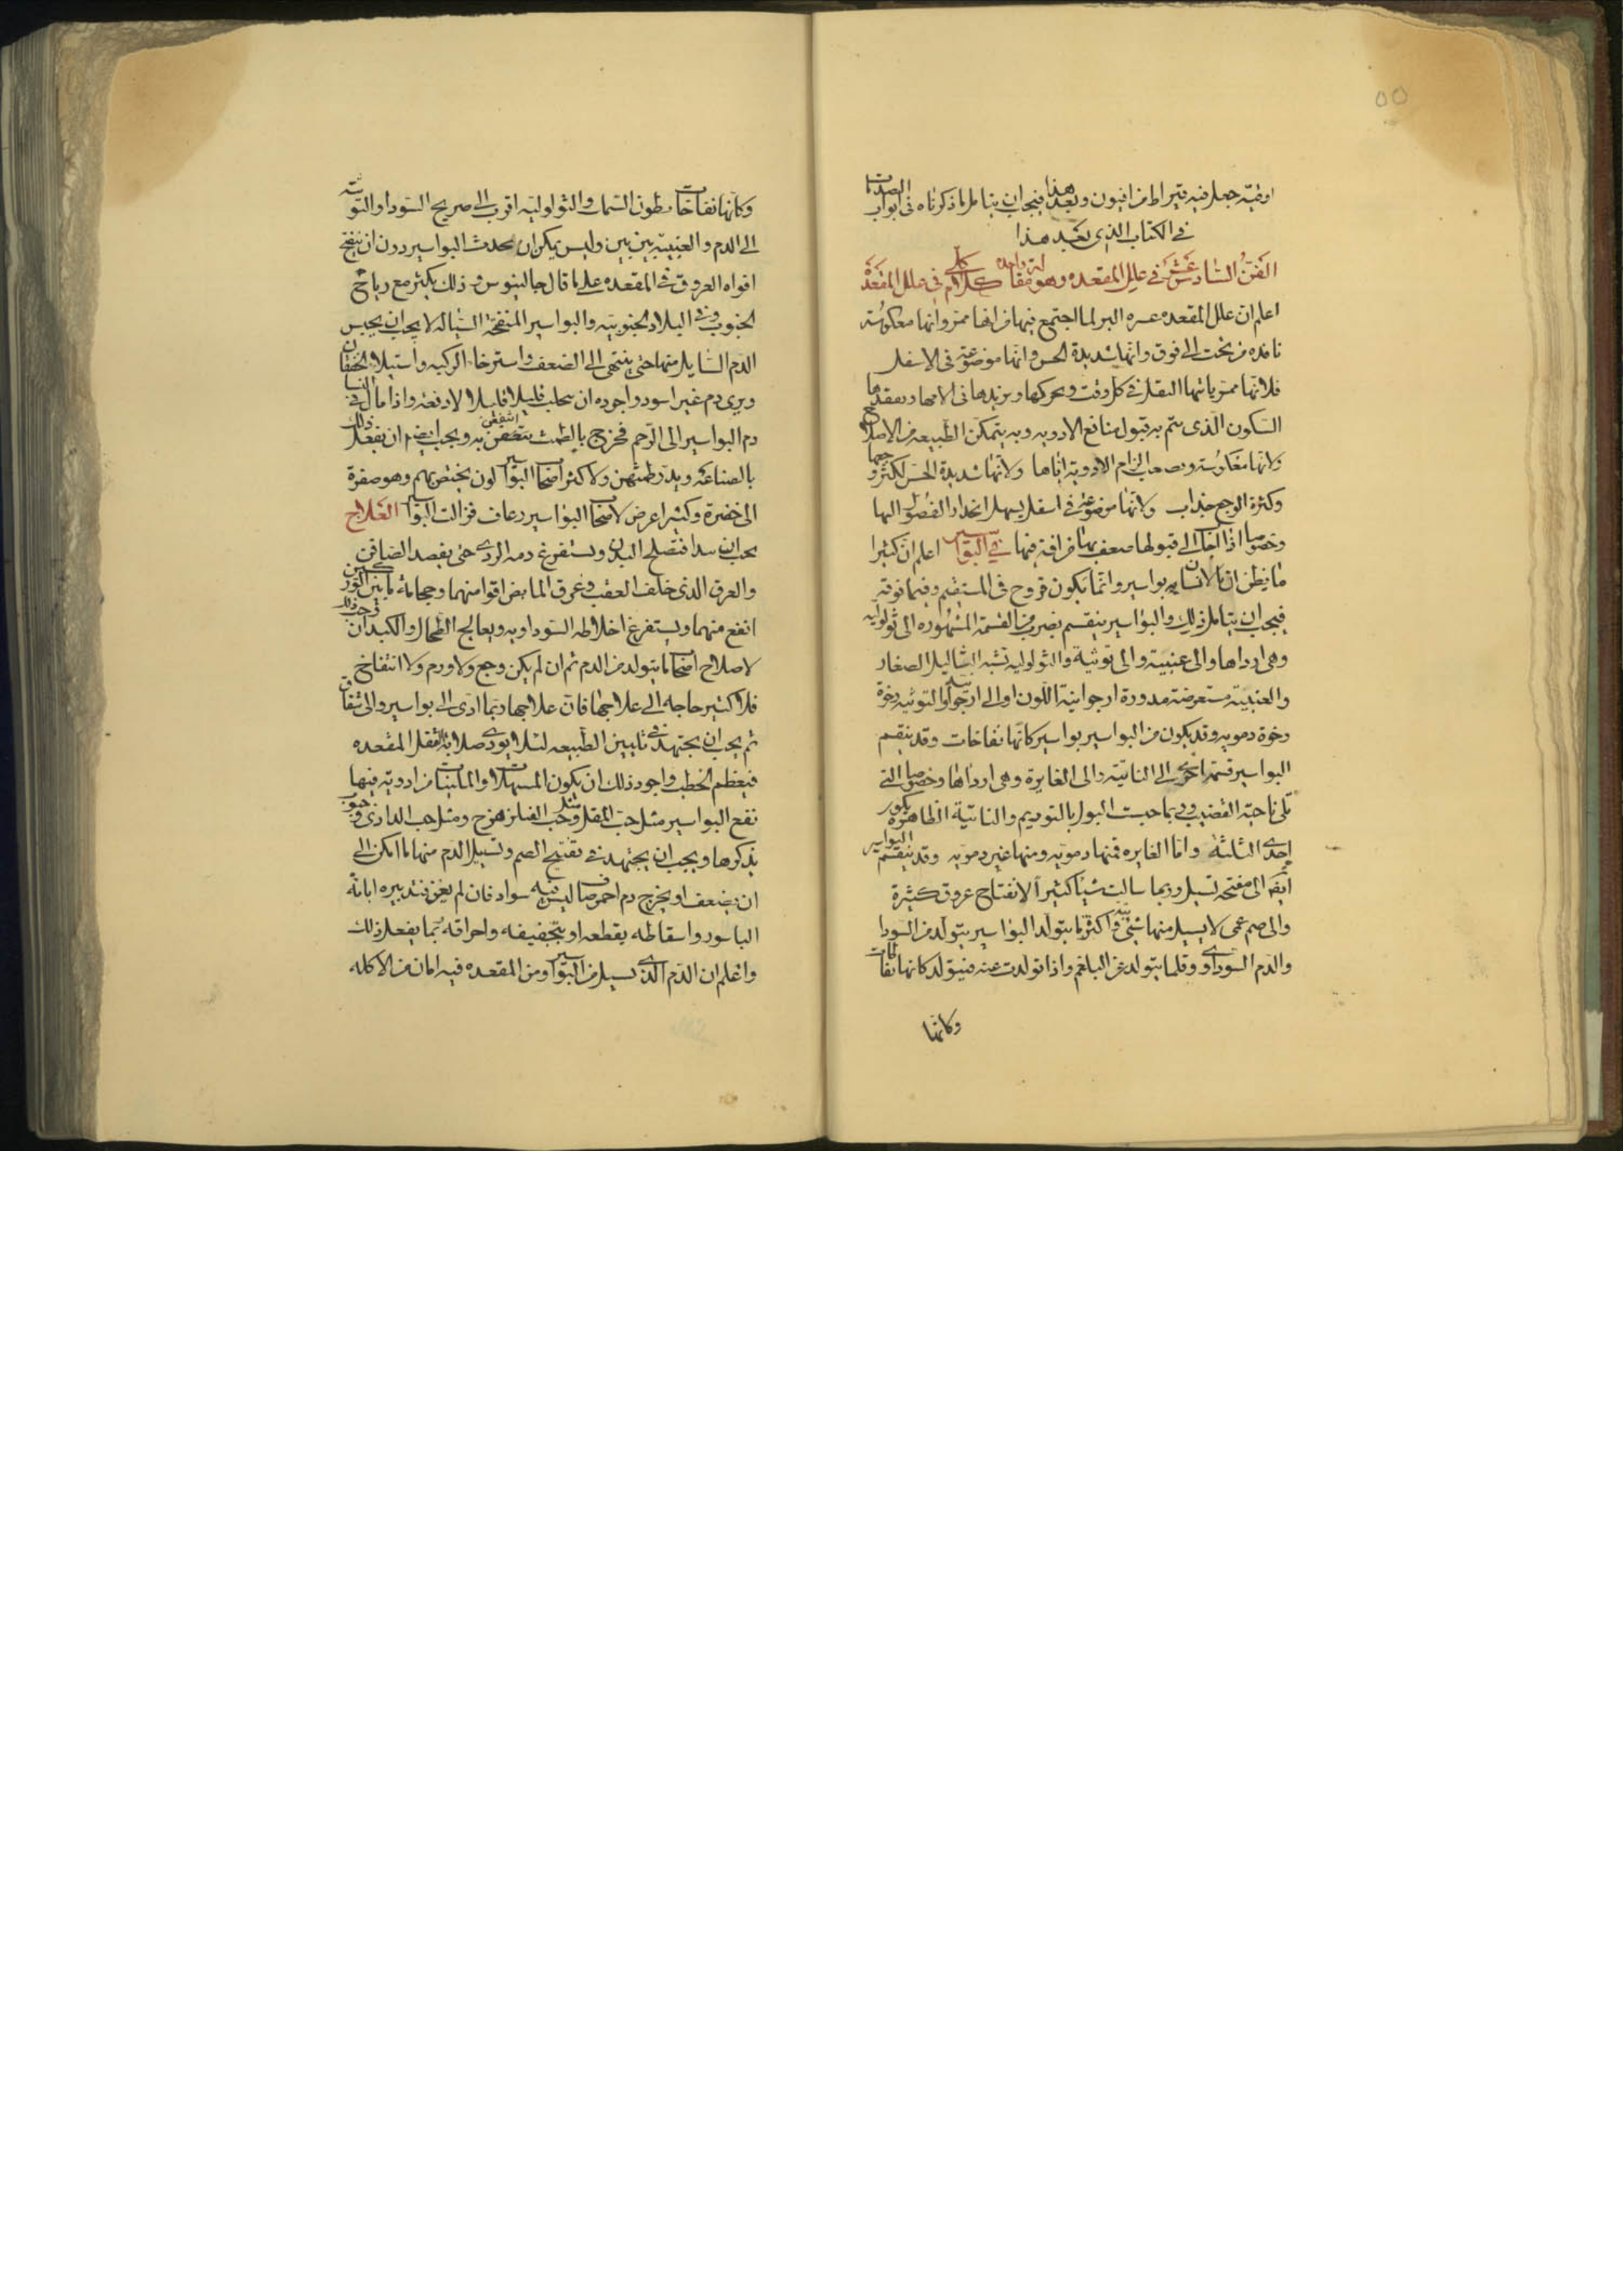 اوقية جعل فيه قيراط من افيون وبعد هذا فيجب ان يتامل ما ذكرناه فى ابواب
فى الكتاب الذى بعد هذا
الفن السادس عشر فى علل المقعده وهو مقالة واحده كلام كلى فى علل المقعدة
اعلم ان علل المقعده عسره البر لما اجتمع فيها من انها ممر وانها معكوسة
نافذه من تحت الى فوق وانها شديدة الحس وانها موضوعة فى الاسفل
فلانها ممر ياتيها الثقل فى كل وقت ويحركها ويزيدها فى الامها ويفقدها
السكون الذى يتم به قبول منافع الادويه وبه يتمكن الطبيعه من الاصلاح
ولانها معكوسة يصعب الزام الادوية اياها ولانها شديدة الحس يكثر وجعها
وكثرة الوجع جذاب ولانها موضوعة فى اسفل يسهل انحدار الفضول اليها
وخصوصا اذا اجاب الى قبولها ضعف بها من افة فيها فى البواسير اعلم ان كثيرا
ما يظن ان بالانسان بواسير وانما يكون قروح فى المستقيم وفيما فوقه
فيجب ان يتامل ذلك والبواسير ينقسم بضرب من القسمة المشهوره الى ثولولية
وهى ارداها والى عنبية والى توثية والثولولية تشبه الثاليل الصغار
والعنبية مستعرضة مدورة ارجوانية اللون او الى ارجوانية والتوثيه رخوة
رخوة دمويه وقد يكون من البواسير بواسير كانها نفاخات وقد ينقسم
البواسير قسمة اخرى الى الناتية والى الغايرة وهى ارداها وخصوصا التى
تلى ناحية القضيب وربما حبست البول بالتوريم والناتية الظاهرة يكون
احدى الثلثة واما الغايره فمنها دمويه ومنها غير دمويه وقد ينقسم البواسير
ايضا الى مفتحة تسيل وربما سالت شيا كثيرا لانفتاح عروق كثيرة
والى صم عمى لا يسيل منها شى واكثر ما يتولد البواسير يتولد من السودا
والدم السوداوى وقلما يتولد عن البلغم واذا تولدت عنه فيتولد كانها نفاخات
وكانها
وكانها نفاخات بطون السمك والثولولية اقرب الى صريح السودا والتوثية
الى الدم والعنبية بين بين وليس يمكن ان يحدث البواسير دون ان تنفتح
افواه العروق فى المقعده على ما قال جالينوس وذلك يكثر مع رياح
الجنوب وفى البلاد الجنوبية والبواسير المنفتحة السيالة لا يجب ان يحبس
الدم السايل منها حتى ينتهى الى الضعف واسترخاء الركبة واستيلاء الخفقان
ويرى دم غير اسود واجوده ان يتحلب قليلا قليلا لا دفعة واذا مال فى النسا
دم البواسير الى الرحم فخرج بالطمث انتفعن به ويجب ايضا ان يفعل ذلك
بالصناعة ويدر طمثهن ولاكثر اصحاب البواسير لون يختص بهم وهو صفرة
الى خضرة وكثيرا عرض لاصحاب البواسير رعاف فزالت البواسير العلاج
يجب ان يبدا فتصلح البدن ويستفرغ دمه الردى حتى يفصد الصافن
والعرق الذى خلف العقب وعرق المابض اقوا منهما وحجامة ما بين الوركين
انفع منهما ويستفرغ اخلاطه السوداويه ويعالج الطحال والكبد ان وجب ذلك
لاصلاح ما يتولد من الدم ثم ان لم يكن وجع ولا ورم ولا انتفاخ
فلا كثير حاجه الى علاجها فان علاجها ربما ادى الى بواسير والى شقاق
ثم يجب ان يجتهد فى تليين الطبيعه لئلا يوذى صلابة الثفل المقعده
فيعظم الخطب واجود ذلك ان يكون المسهلات والملينات من ادوية فيها
نفع البواسير مثل حب المقل ومثل حب الفيلزهرج ومثل حب الدادى وحبوب
يذكرها ويجب ان يجتهد فى تفتيح الصم وتسييل الدم منها ما امكن الى
ان يضعف او يخرج دم احمر صاف ليس فيه سواد فان لم يغن فتدبيره ابانة
الباسور واسقاطه بقطعه او بتجفيفه واحراقه بما يفعل ذلك
واعلم ان الدم الذى يسيل من البواسير ومن المقعده فيه امان من الاكله